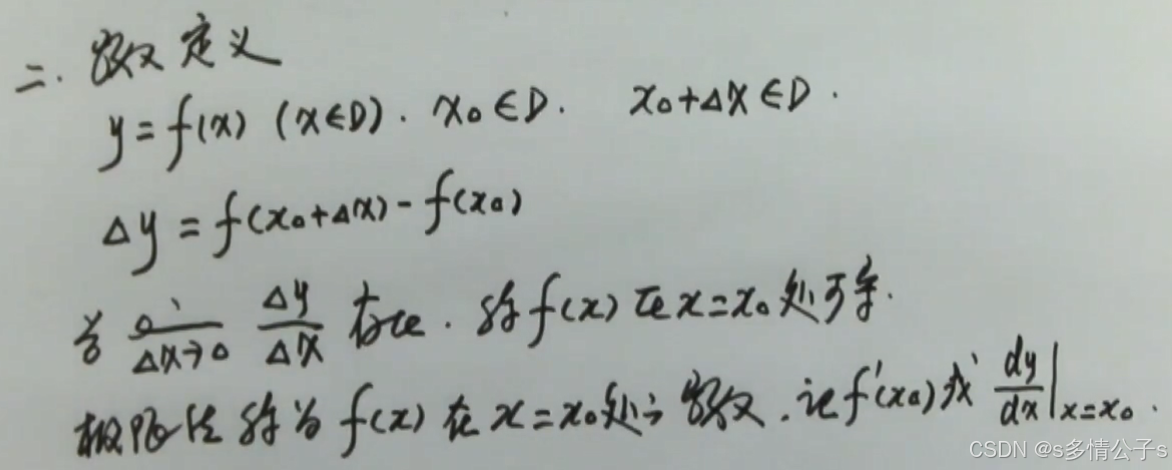 二. 导数定义
y=f(x) (x∈D). x₀∈D. x₀+Δx∈D.
Δy=f(x₀+Δx)-f(x₀)
若 lim Δx→0 Δy/Δx 存在. 称f(x)在x=x₀处可导.
极限值称为f(x)在x=x₀处的导数.记f'(x₀)或 dy/dx|x=x₀.
CSDN @s多情公子s